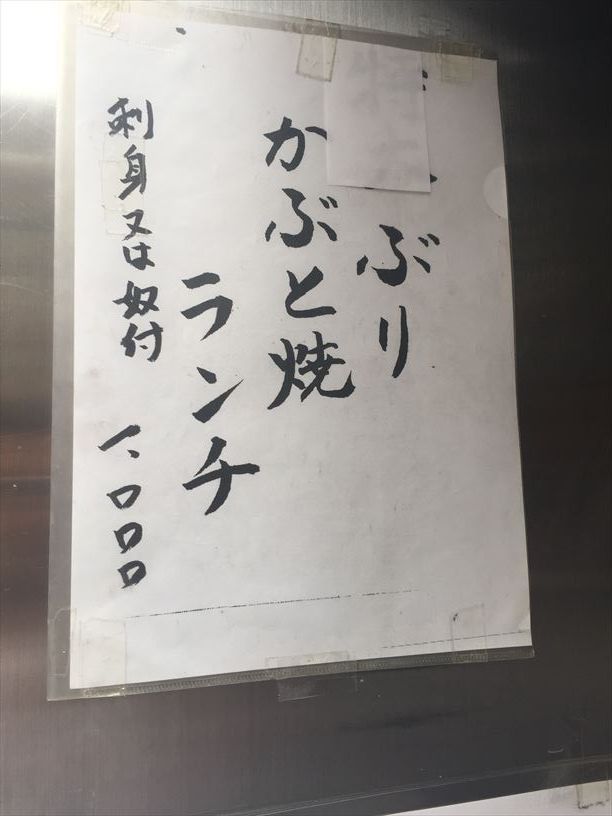 ぶり
かぶと焼
ランチ
刺身又は奴付 一、〇〇〇